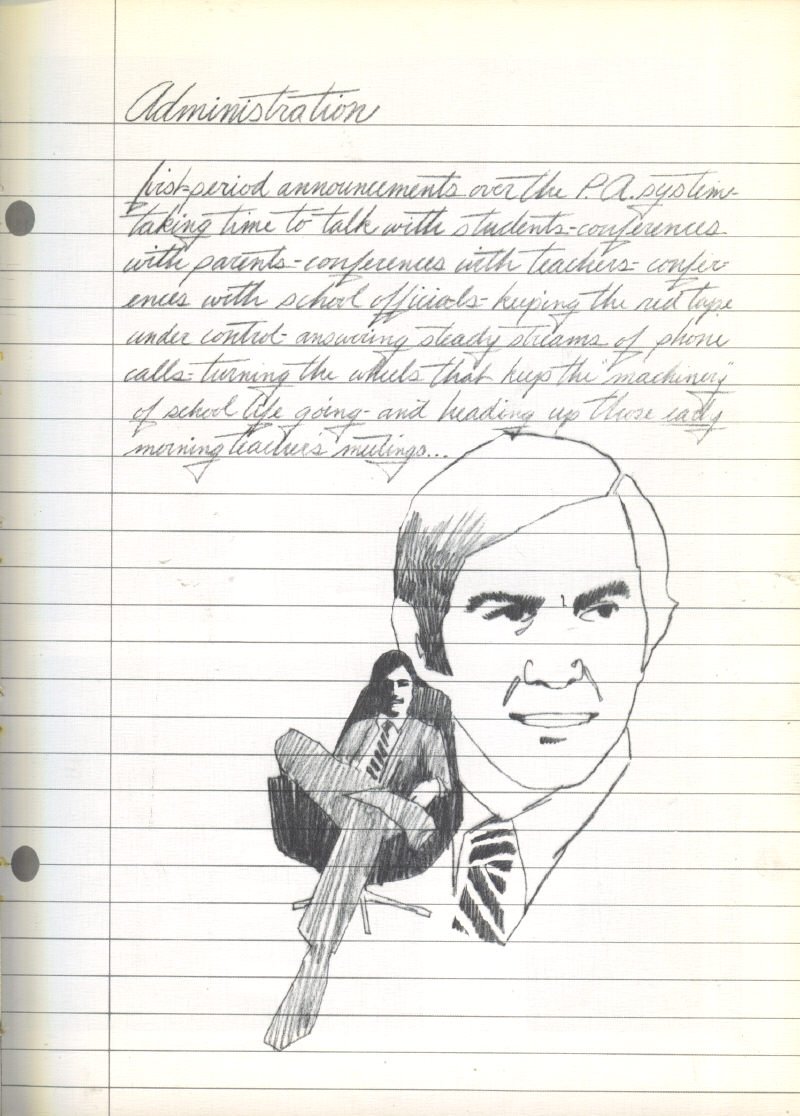 Administration
first-period announcements over the P.A. system-
taking time to talk with students-conferences
with parents-conferences with teachers-confer-
ences with school officials-keeping the red tape
under control-answering steady streams of phone
calls-turning the wheels that keep the "machinery"
of school life going-and heading up those early
morning teacher's meetings...